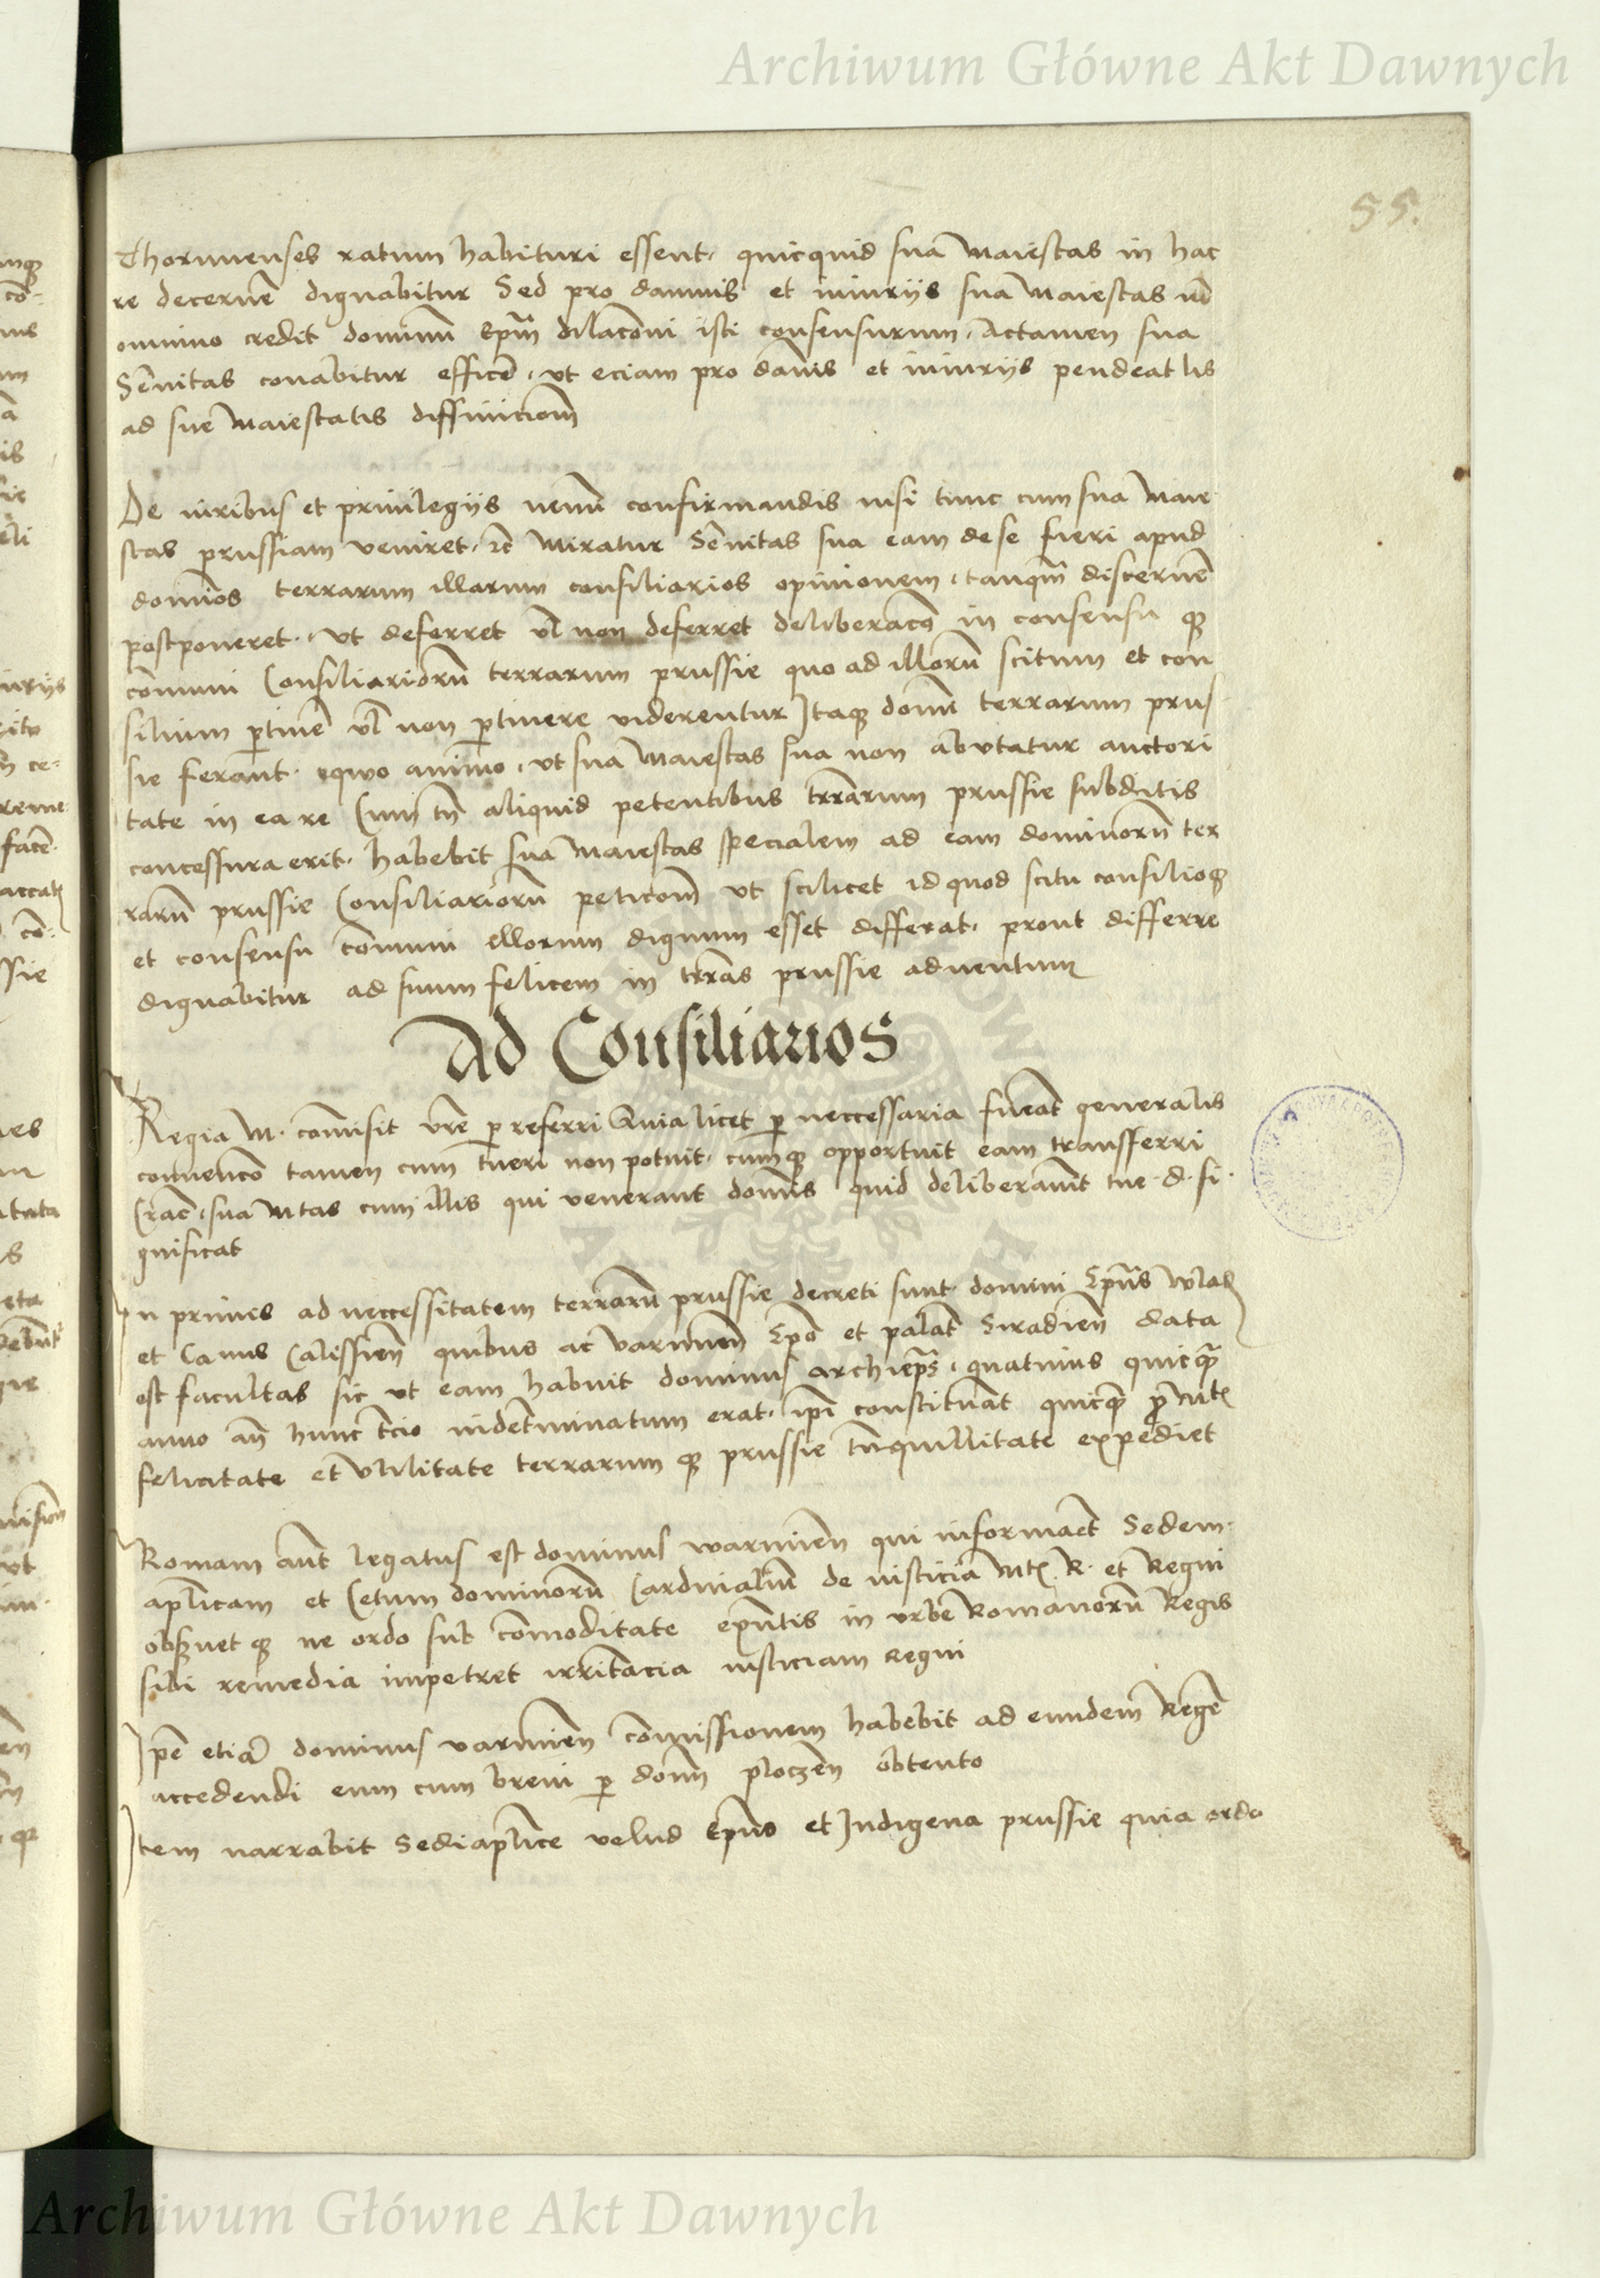 Archiwum Główne Akt Dawnych
55.
Thorunenses ratum habituri essent, quicquid sua Maiestas in hac
re decerne̅ dignabitur Sed pro damnis et iniuriis sua Maiestas
omnino credit dominu̅ Ep̅m dilac̅oni isti consensurum, Actamen sua
Se̅nitas conabitur effice̅, ut eciam pro da̅nis et iniuriis pendeat lis
ad sue Maiestatis diffinicio̅m
De iuribus et priuilegiis nemi̅ confirmandis nisi tunc cum sua Maie
stas prussiam veniret, Miratur Se̅nitas sua eam de se fieri apud
domi̅os terrarum illarum consiliarios opinionem, tanq̅m discerne̅
postponeret, ut deferret ul̅ non deferret deliberac̅o̅ in consensu q
co̅muni Consiliarioru̅ terrarum prussie quo ad illoru̅ scitum et con
silium p̲tine̅ ul̅ non p̲tinere uiderentur Itaq domi̅ terrarum prus
sie ferant eqwo animo, ut sua Maiestas sua non abutatur auctori
tate in ea re Cum tn̅ aliquid petentibus tr̅rarum prussie subditis
concessura erit, habebit sua Maiestas specialem ad eam dominoru̅ ter
raru̅ prussie Consiliarioru̅ petico̅m ut scilicet id quod scitu consilioq
et consensu co̅muni illorum dignum esset differat, prout differre
dignabitur ad suum felicem in tr̅ras prussie aduentum
Ad Consiliarios
Regia M. co̅misit vr̅e p̲ referri Quia licet p̲ neccessaria fuera̅t generalis
conuenc̅o tamen cum tueri non potuit, cumq opportuit eam transferri
Crac̅, sua M̅tas cum illis qui venerant domi̅s quid deliberaui̅t tue. d. si
gnificat
In primis ad neccessitatem terraru̅ prussie decreti sunt domini Ep̅us wlad
et Canus Calissien̅ quibus ac varmien̅ Ep̅o et palat̅ Siradien̅ data
est facultas sic ut eam habuit dominus archiep̅s, quatnius quicq̅
anno an̅ hunc t̅cio indet̅minatum erat, ip̅i constitua̅t quicq̅ p̅ Mt̅
felicitate et utilitate terrarumq prussie t̅nquillitate expediet
Romam au̅t legatus est dominus warmien̅ qui informa̅et Sedem
ap̅licam et Cetum dominoru̅ Cardinaliu̅ de iusticia Mt̅ R. et Regni
obs̅uetq ne ordo sub co̅moditate exn̅tis in urbe Romanoru̅ Regis
sibi remedia impetret irrita̅cia iusticiam Regni
Ip̅e etia̅ dominus varmien̅ co̅missionem habebit ad eundem Rege̅
accedendi eum cum breui p̲ dom̅ ploczen̅ obtento
Item narrabit Sedi ap̅lice velud Ep̅us et Indigena prussie quia ordo
Archiwum Główne Akt Dawnych